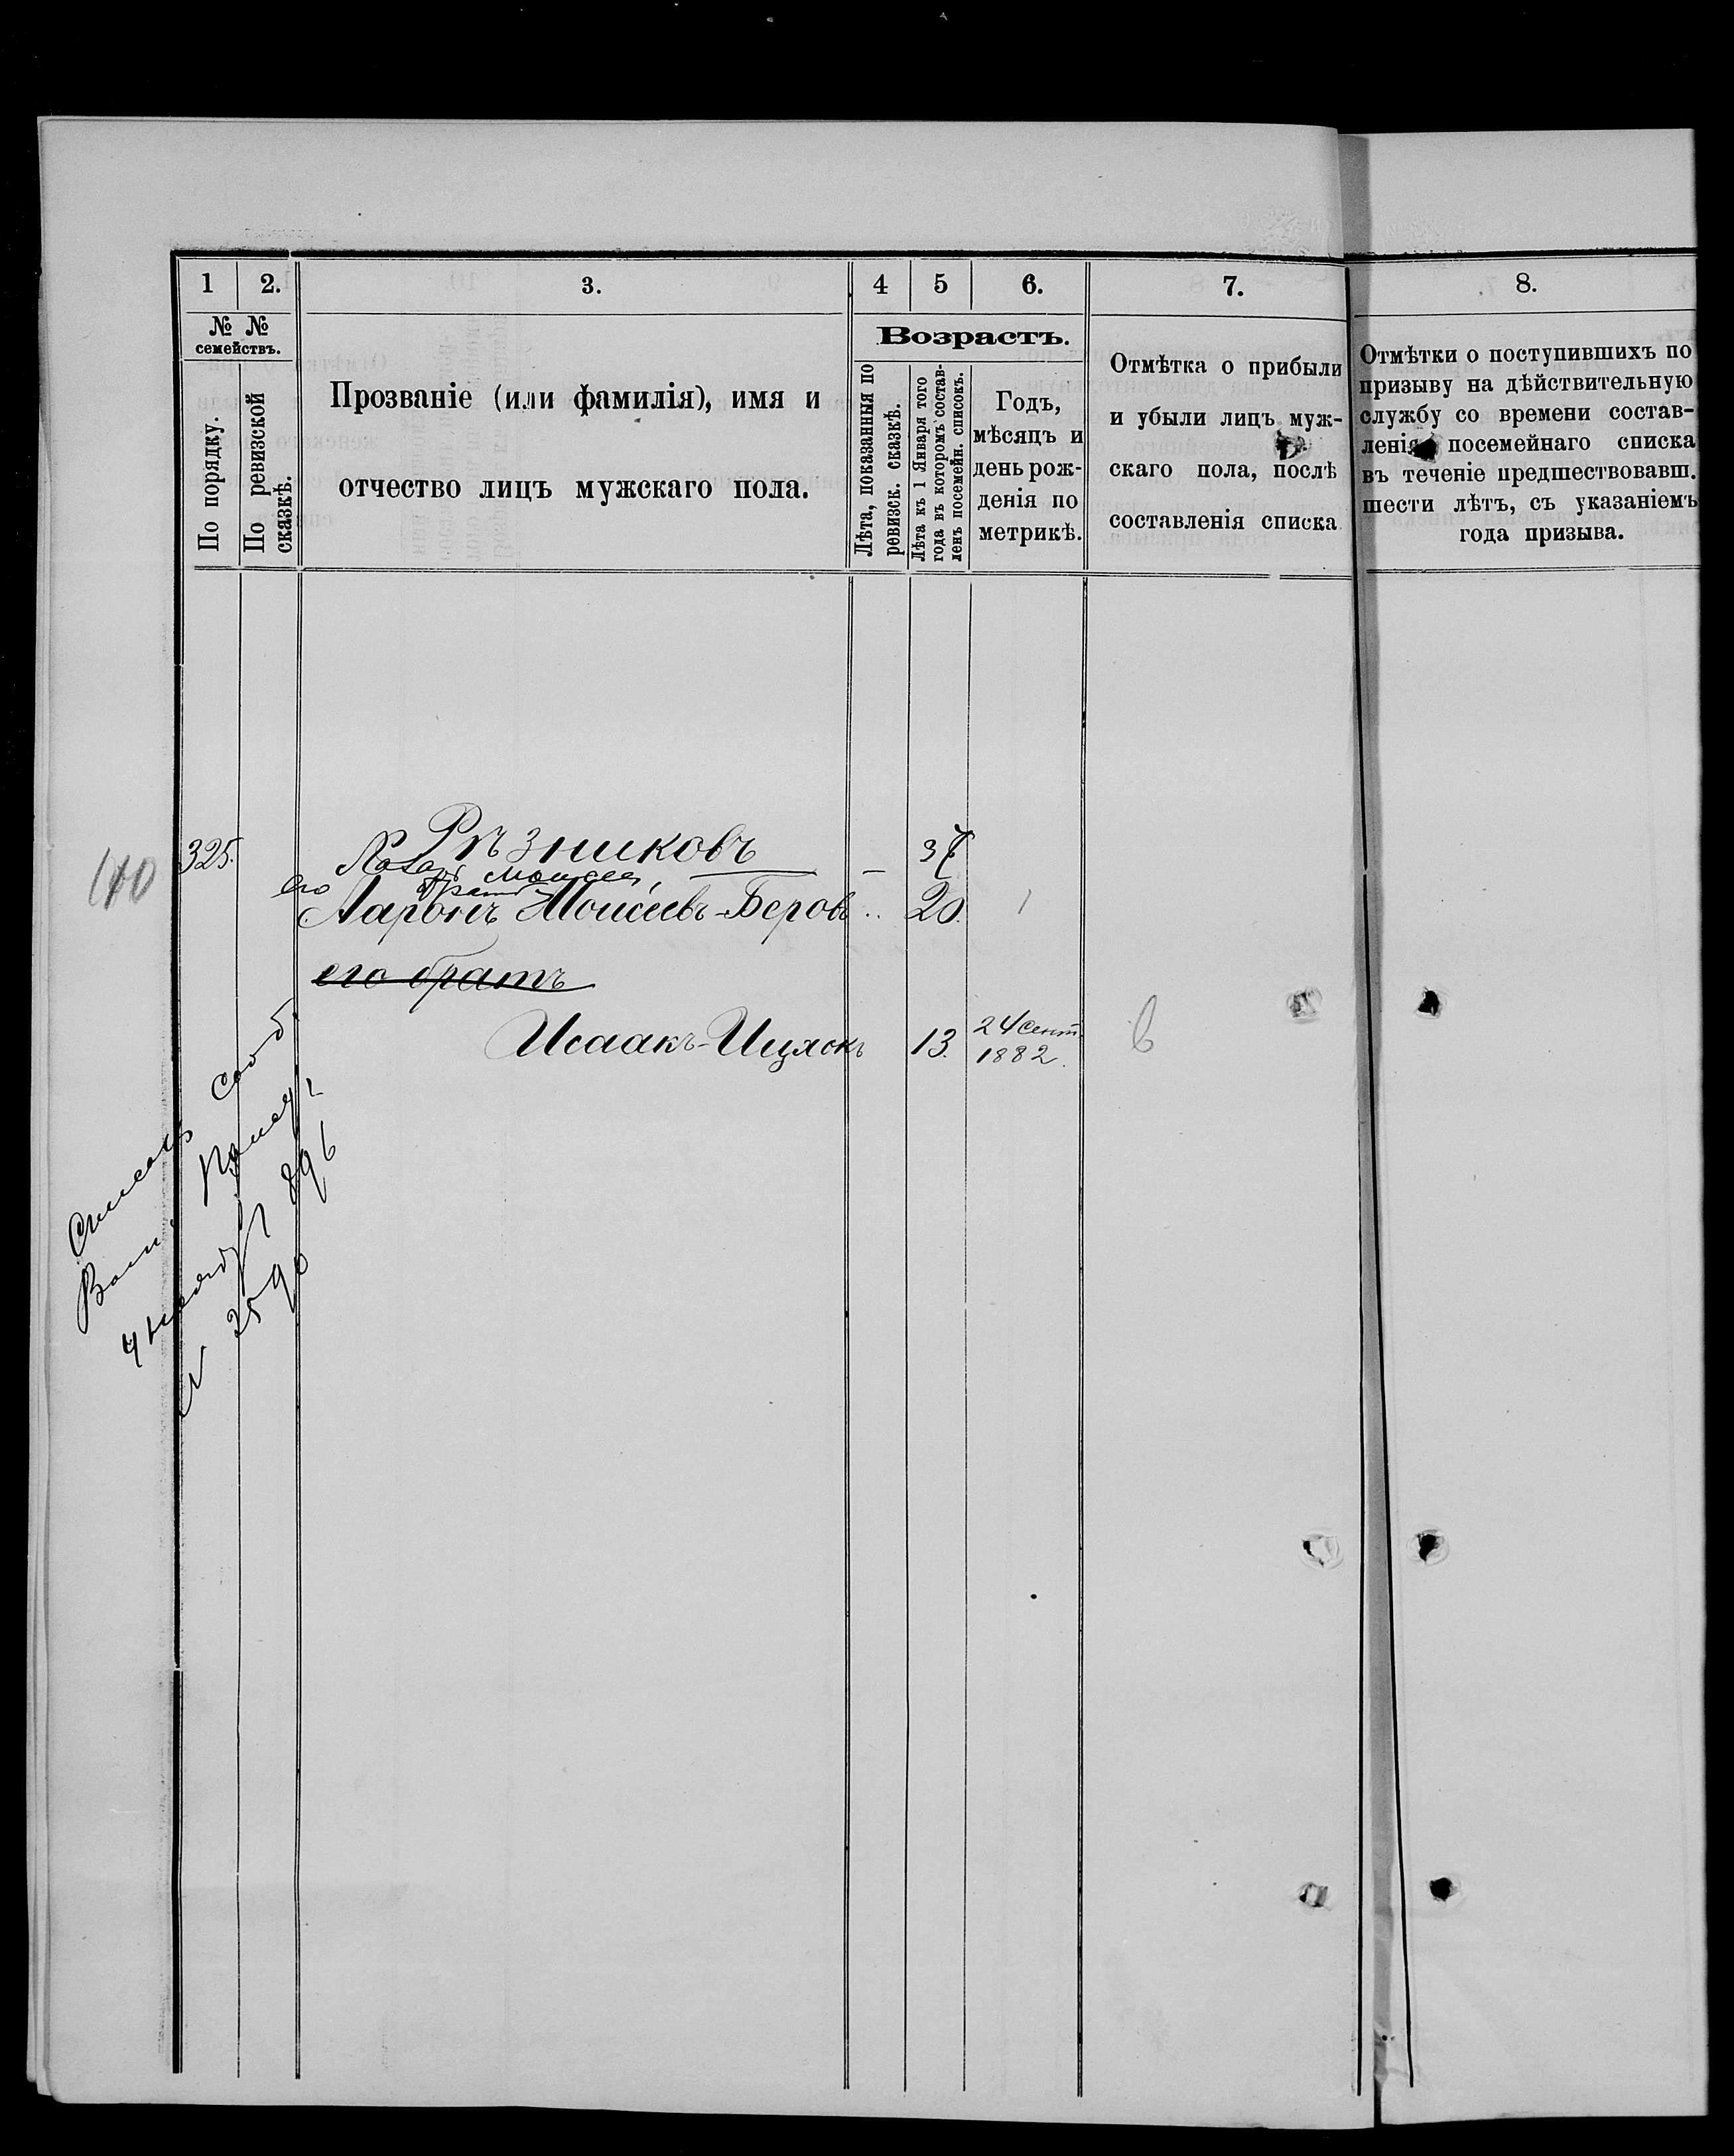 1 2. 3. 4 5 6. 7. 8.
№ №
семействъ.
По порядку.
По ревизской
сказкѣ.
Прозваніе (или фамилія), имя и
отчество лицъ мужскаго пола.
Возрастъ.
Лѣта, показанныя по
ревизск. сказкѣ.
Лѣта къ 1 Января того
года въ которомъ состав-
ленъ посемейн. списокъ.
Годъ,
мѣсяцъ и
день рож-
денія по
метрикѣ.
Отмѣтка о прибыли
и убыли лицъ муж-
скаго пола, послѣ
составленія списка
Отмѣтки о поступившихъ по
призыву на дѣйствительную
службу со времени состав-
ленія посемейнаго списка
въ теченіе предшествовавш.
шести лѣтъ, съ указаніемъ
года призыва.
140
325. Рѣзниковъ
его братъ
Ааронъ Моисеевъ-Беровъ 20.
его братъ
Исаакъ-Ицхокъ 13. 24 сент.
1882.
Списокъ сооб.
896
2590